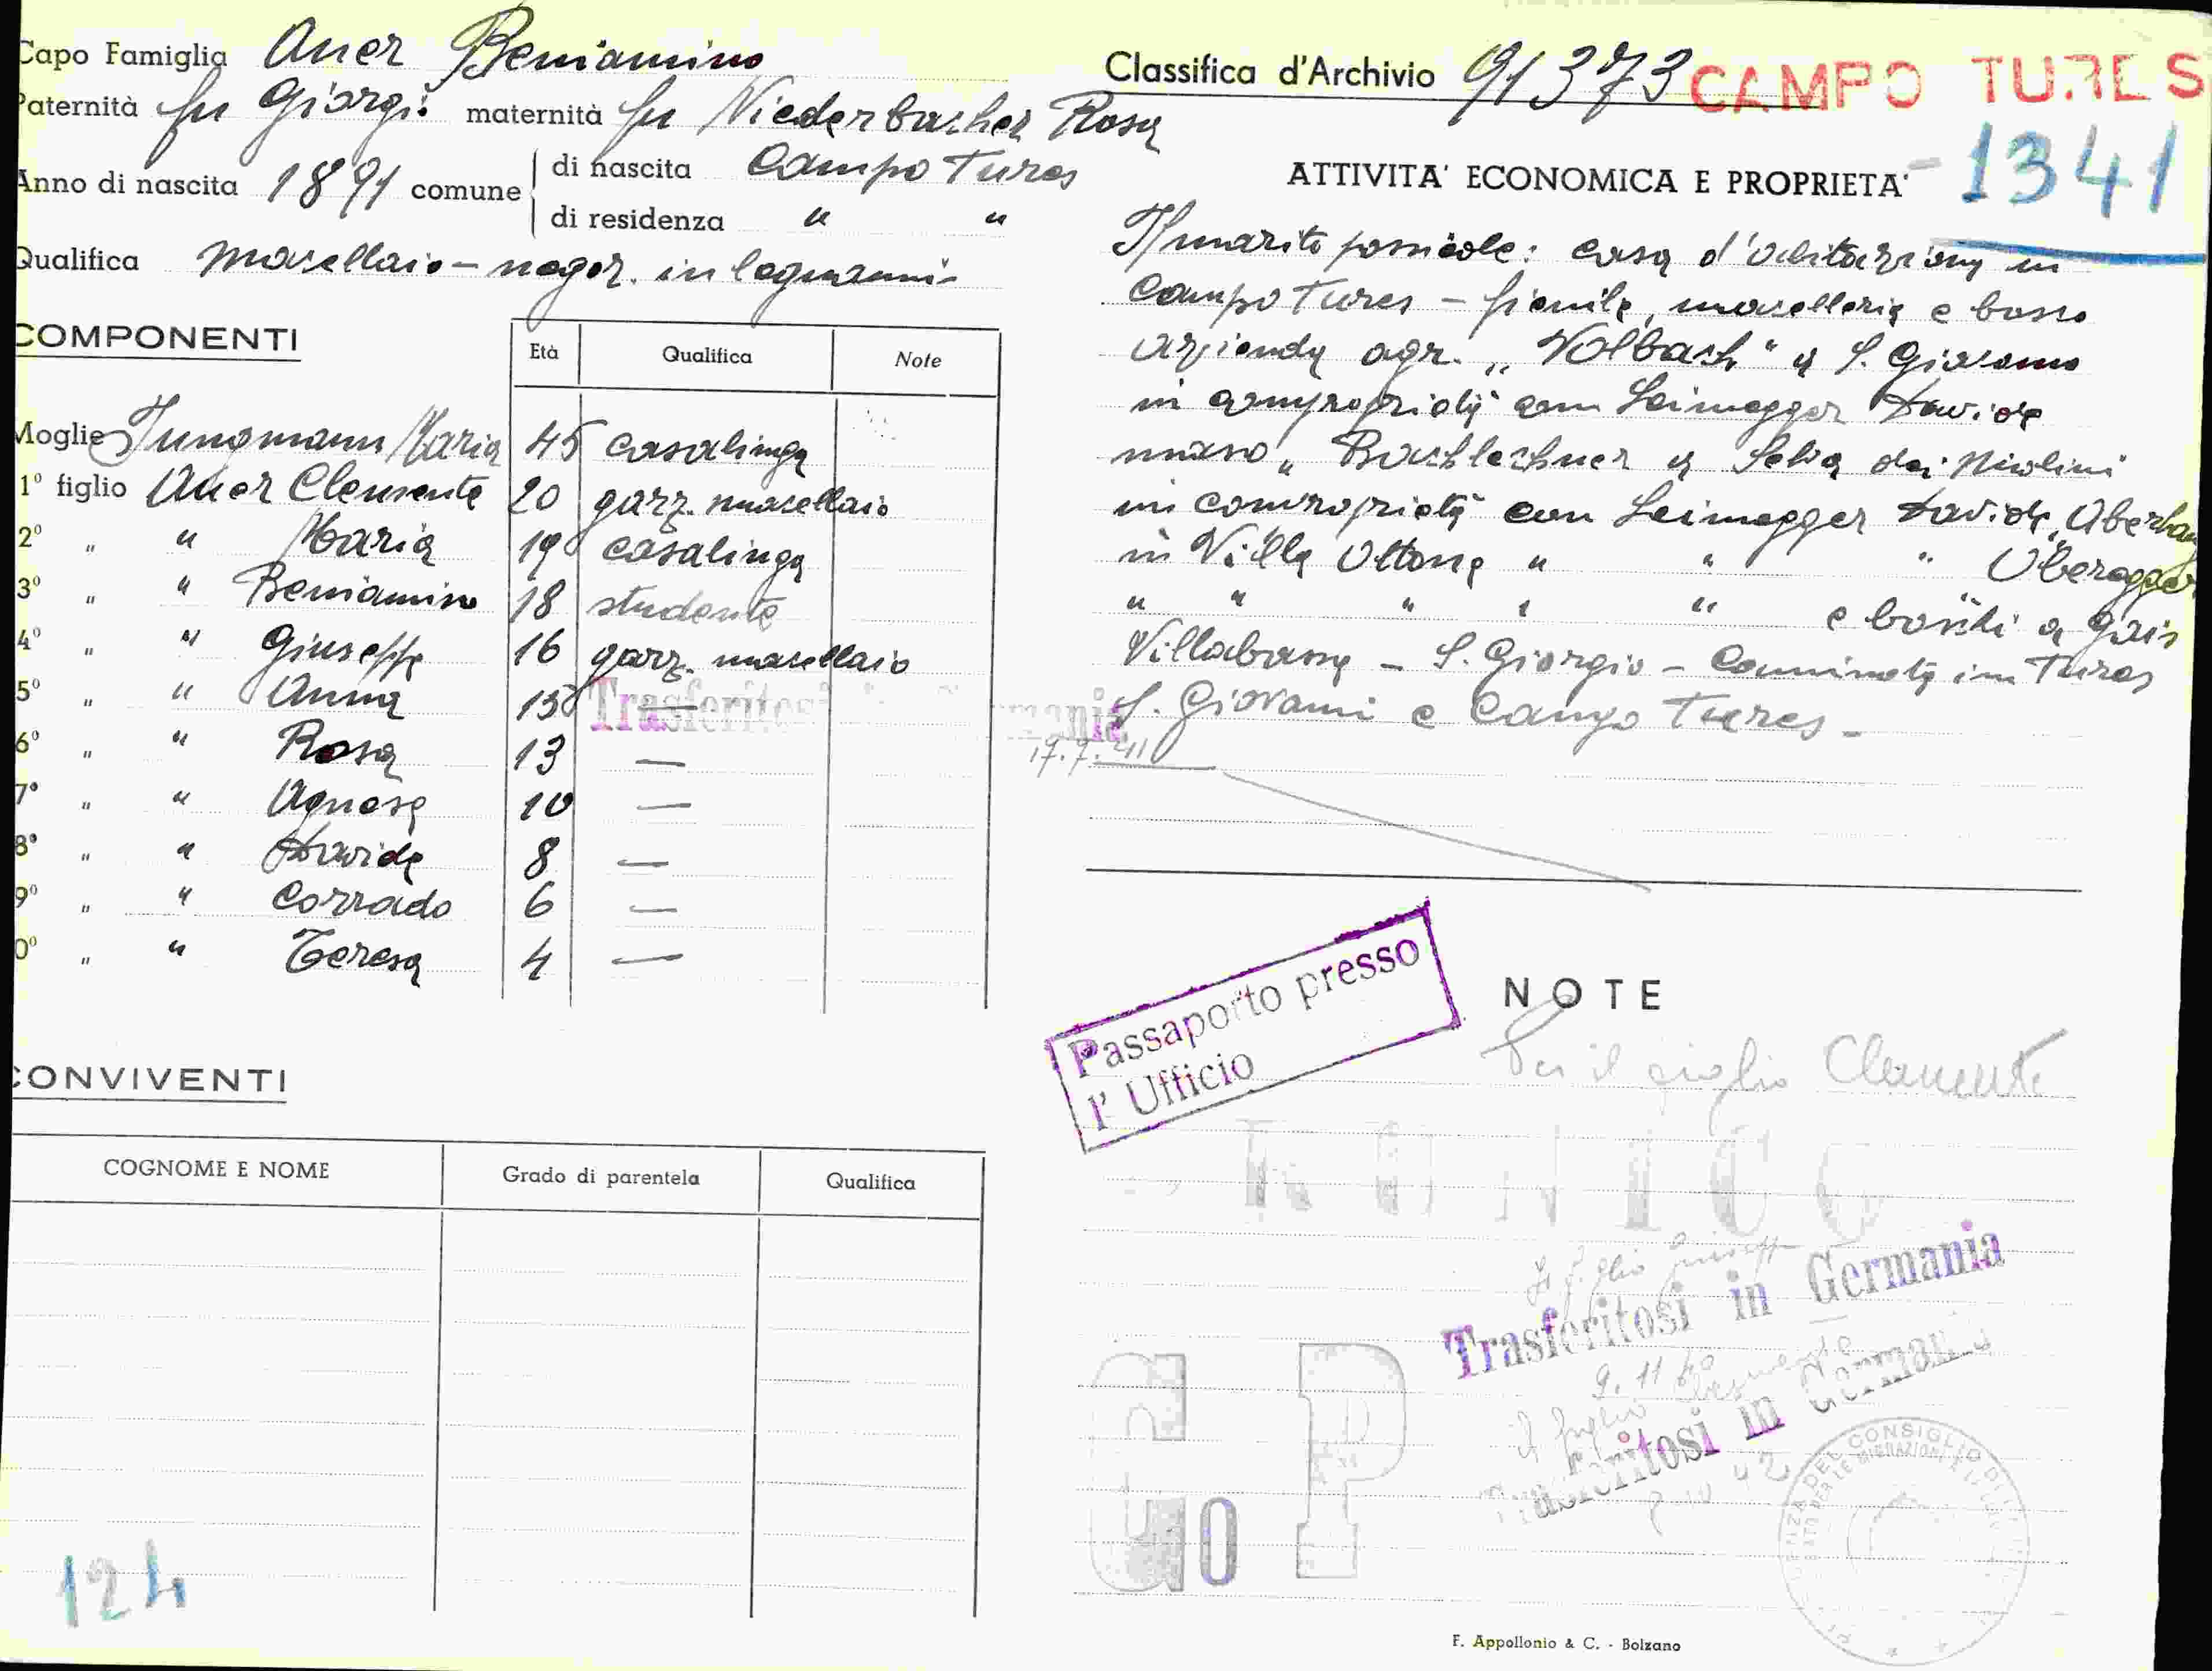 Capo Famiglia Auer Beniamino
Paternità fu Giorgio maternità fu Niederbacher Rosa
Anno di nascita 1891 comune di nascita Campo Tures
di residenza " "
Qualifica macellaio - negoz. in legnami
COMPONENTI
Età Qualifica Note
Moglie Jungmann Maria 45 casalinga
1º figlio Auer Clemente 20 garz. macellaio
2º " " Maria 19 casalinga
3º " " Beniamino 18 studente
4º " " Giuseppe 16 garz. macellaio
5º " " Anna 15 —
Trasferitosi in Germania
17.7.41
6º " " Rosa 13 —
7º " " Agnese 10 —
8º " " Davide 8 —
9º " " Corrado 6 —
0º " " Teresa 4 —
CONVIVENTI
COGNOME E NOME Grado di parentela Qualifica
124
Classifica d'Archivio 91373 CAMPO TURES
- 1341
ATTIVITA' ECONOMICA E PROPRIETA'
Il marito possiede: casa d'abitazione in
Campo Tures - fienile, macelleria e bosco
azienda agr. „Volbach" a S. Giacomo
in compropietà con Leimegger Davide
maso „Bachlechner a Selva dei Molini
in compropietà con Leimegger Davide, Oberhau
in Villa Ottone " " " Oberegger
" " " " " e boschi a Gais
Villabassa - S. Giorgio - Caminata in Tures
S. Giovanni e Campo Tures -
Passaporto presso
l' Ufficio
NOTE
Per il figlio Clemente
RUNICO
il figlio Giuseppe
Trasferitosi in Germania
9.11.40
il figlio Clemente
Trasferitosi in Germania
42
G P
10
DEL CONSIGLIO DEI
PER LE MIGRAZIONI E
F. Appollonio & C. - Bolzano